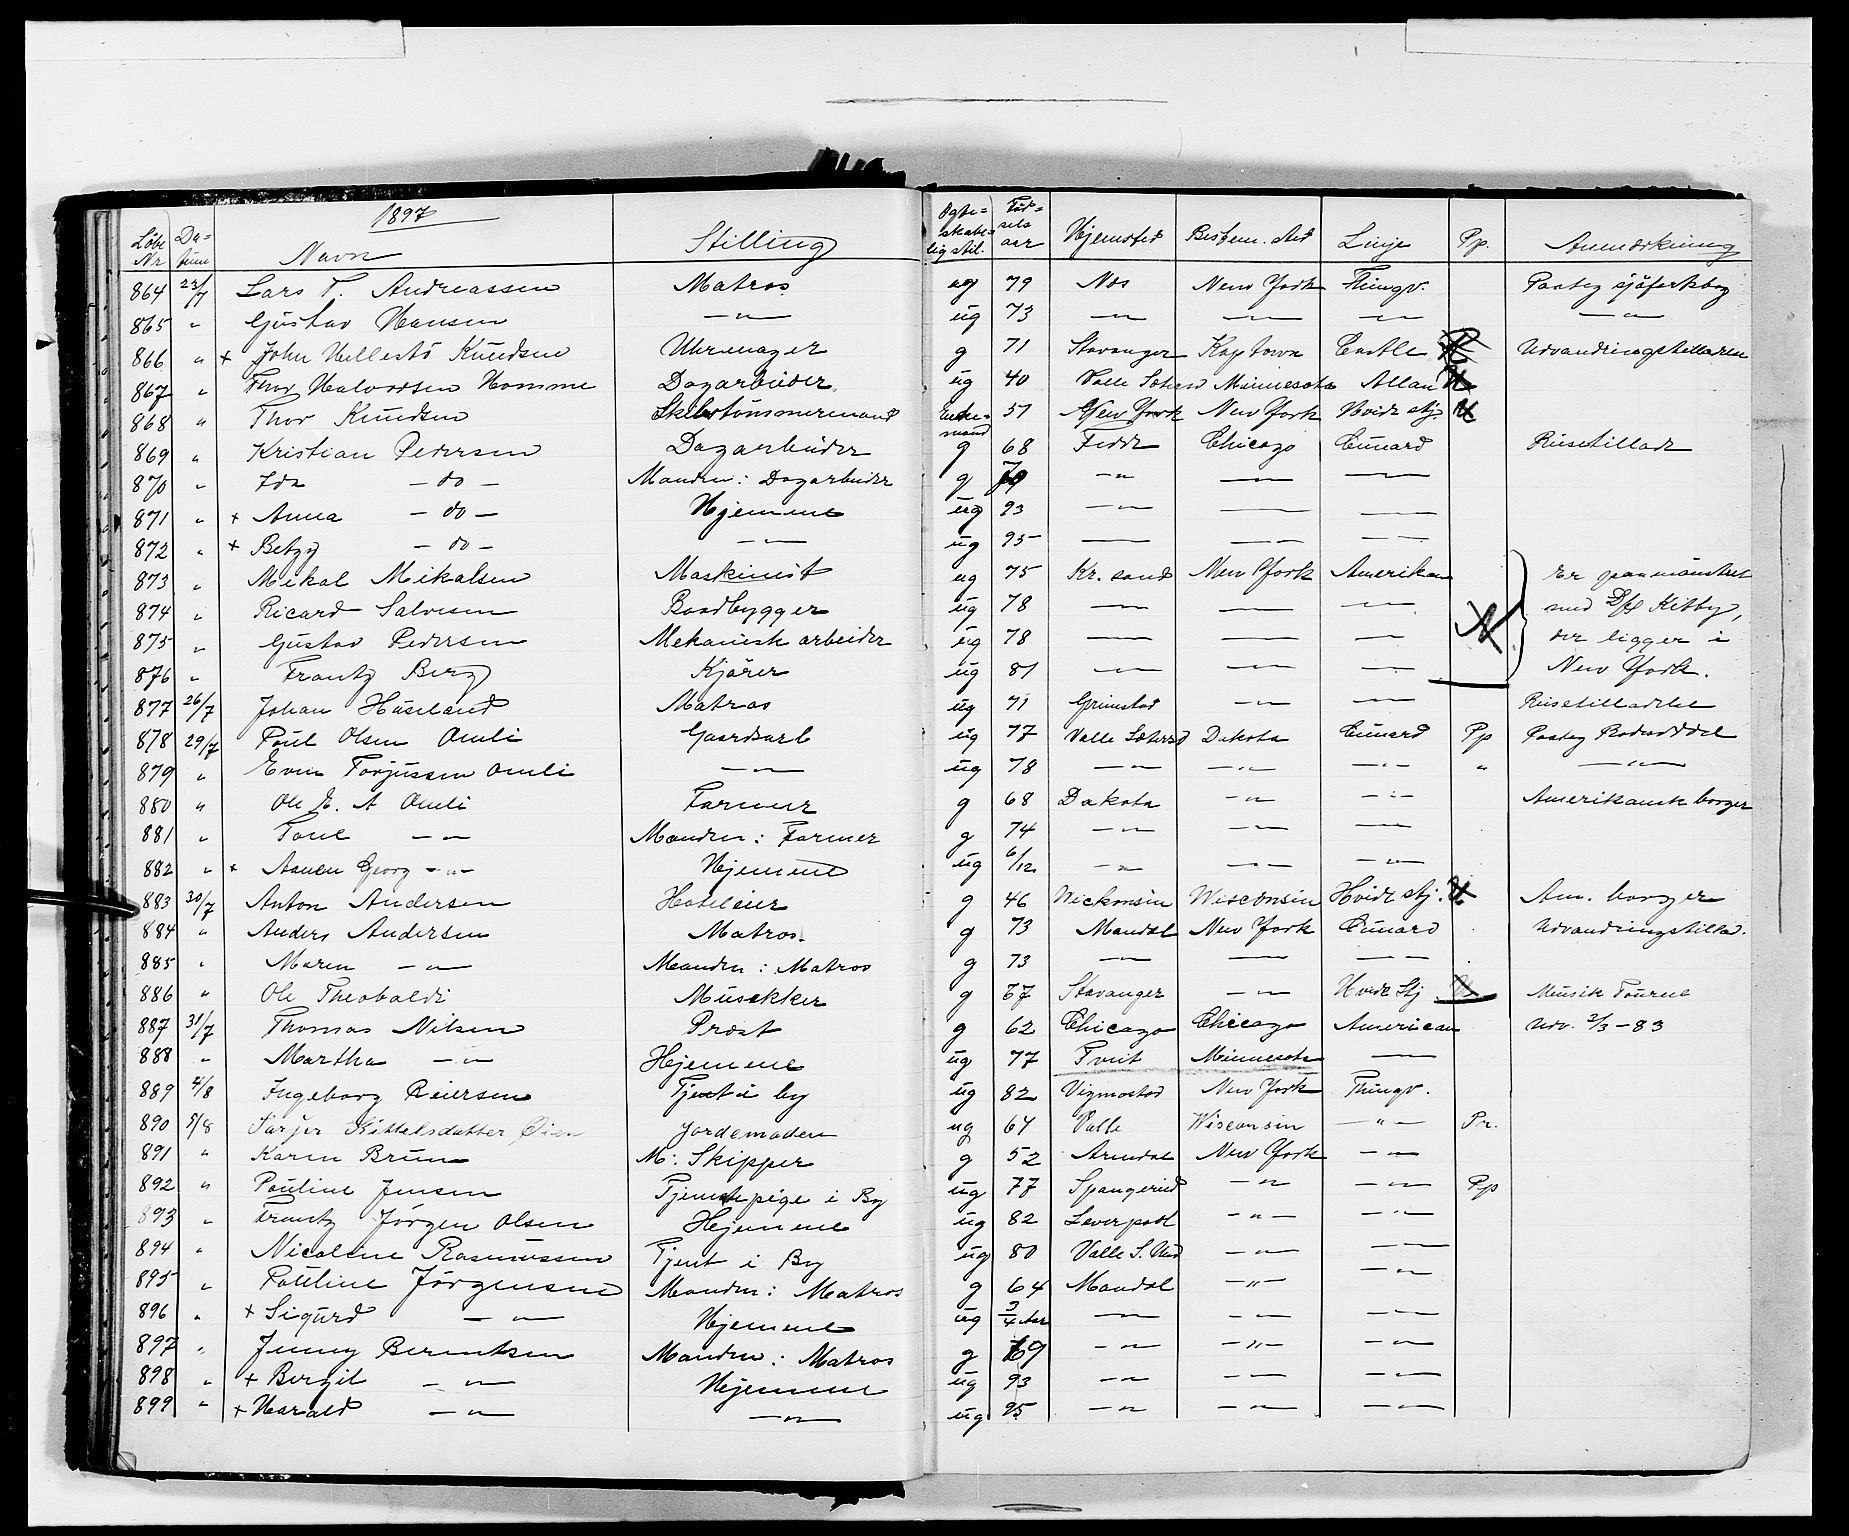 1897
Løbe Nr Da=tum Navn Stilling Ægte=skabe=lig stil. Fød=sels aar Hjemsted Bestem. sted Linje Pp. Anmærkning
864 23/7 Lars T. Andreassen Matros ug 79 Næs New York Thingv. Paateg sjöfartsbog
865 " Gustav Hansen —"— ug 73 —"— —"— —"— —"—
866 " + John Hellestö Knudsen Uhrmager g 71 Stavanger Kaptown Castle Udvandringstilladelse
867 " Thor Halvorsen Homme Dagarbeider ug 40 Valle Sætersd Minnesota Allan
868 " Thor Knudsen Skibstömmermand Enke=mand 51 New York New York Hvide stj.
869 " Kristian Pedersen Dagarbeider g 68 Fede Chicago Cunard Reisetillade
870 " Ida — do — Manden: Dagarbeider g —"— —"— —"—
871 " + Anna — do — Hjemme ug 93 —"— —"— —"—
872 " + Betzy — do — —"— ug 95 —"— —"— —"—
873 " Mikal Mikalsen Maskinist ug 75 Kr. sand New York Amerikan Er paamönstret
874 " Ricard Salvesen Baadbygger ug 78 —"— —"— —"— med D/S Kitty,
875 " Gustav Pedersen Mekanisk arbeider ug 78 —"— —"— —"— der ligger i
876 " Frantz Berg Kjører ug 81 —"— —"— —"— New York.
877 26/7 Johan Haaland Matros ug 71 Grimstad —"— —"— Reisetilladelse
878 29/7 Poul Olsen Omli Gaardkarl ug 77 Valle Sætersd Dakota Cunard Pp Paateg Rodseddel
879 " Even Torjussen Omli —"— ug 78 —"— —"— —"— " —"—
880 " Ole E. A Omli Farmer g 68 Dakota —"— —"— Amerikansk borger
881 " Tone —"— Manden: Farmer g 74 —"— —"— —"—
882 " + Georg —"— Hjemme ug 6/12 —"— —"— —"—
883 30/7 Anton Andersen Hoteleier g 46 Wickonsin Wisconsin Hvide stj. Am. borger
884 " Anders Andersen Matros g 73 Mandal New York Cunard Udvandringstillad.
885 " Maren —"— Manden: Matros g 73 —"— —"— —"—
886 " Ole Theobaldi Musekker g 67 Stavanger —"— Hvide Stj Musik Tourne
887 31/7 Thomas Nilsen Præst g 62 Chicago Chicago American Udv. 2/3-83
888 " Martha —"— Hjemme ug 77 Tveit Minnesota —"—
889 4/8 Ingeborg Reiersen Tjent i by ug 82 Vigmostad New York Thingv.
890 5/8 Kittelsdatter Øien Jordemoder ug 64 Valle Wisconsin —"— Pr.
891 " Karen Bruun M: Skipper g 52 Arendal New York —"—
892 " Pauline Jensen Tjenestepige i By ug 77 Spangereid —"— —"— Pp
893 " Frantz Jörgen Olsen Hjemme ug 82 Leverpool —"— —"—
894 " Nicoline Rasmussen Tjent i By ug 80 Valle S. Und —"— —"—
895 " Pauline Jörgensen Manden: Matros g 64 Mandal —"— —"—
896 " + Sigurd —"— Hjemme ug 3/4 Aar —"— —"— —"—
897 " Jenny Berentsen Manden: Matros g 69 —"— —"— —"—
898 " + Bergit —"— Hjemme ug 93 —"— —"— —"—
899 " + Harald —"— —"— ug 95 —"— —"— —"—